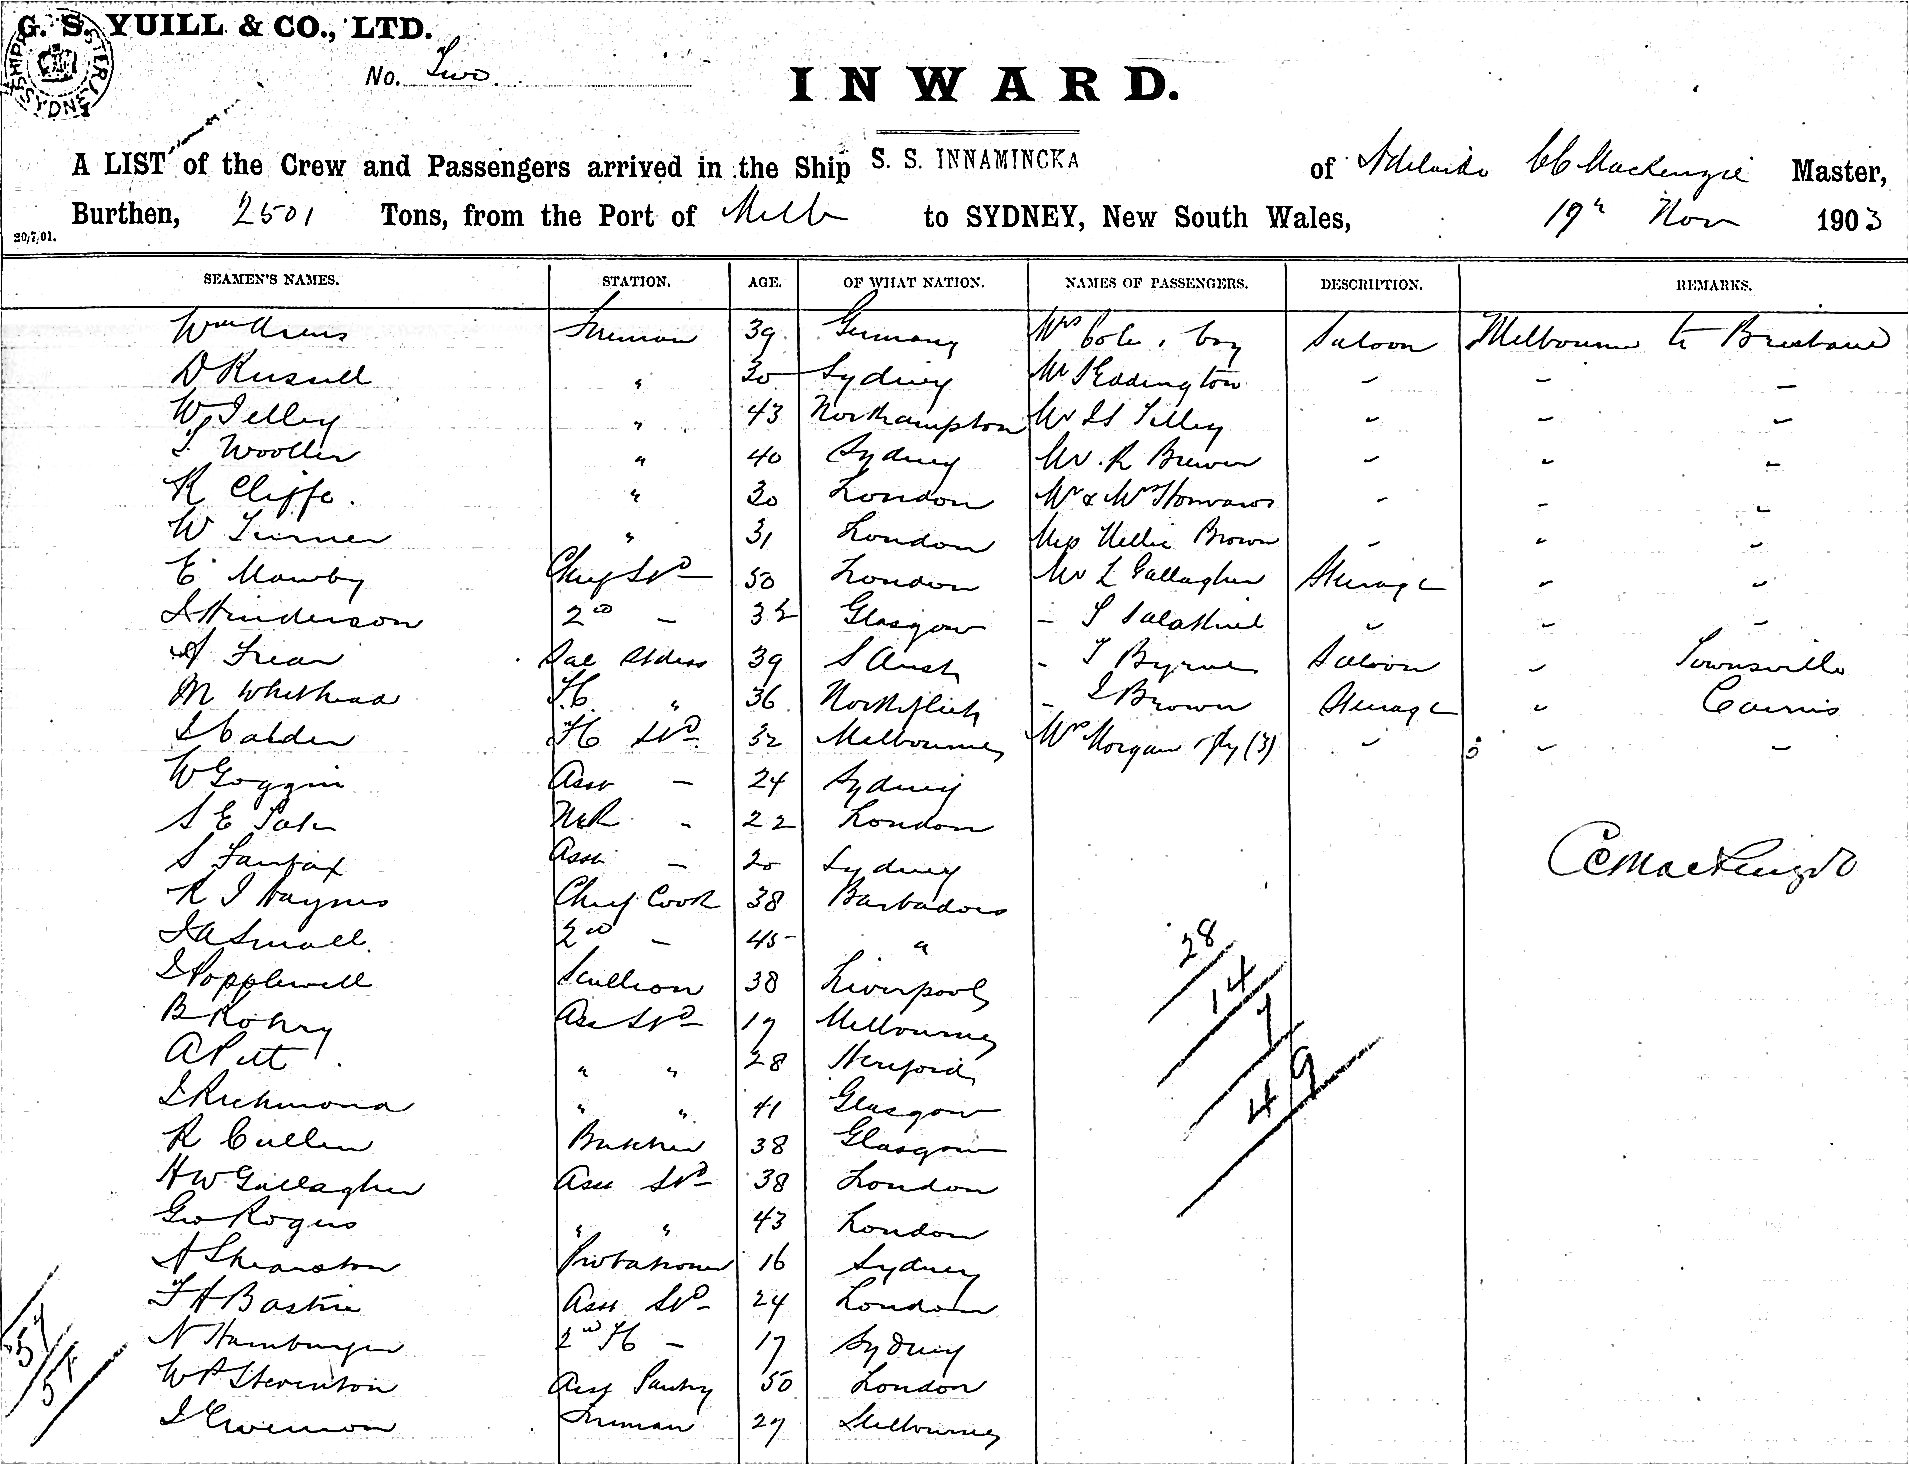 G. S. YUILL & CO., LTD.
SHIPP STER SYDNEY
No. Two
INWARD.
A LIST of the Crew and Passengers arrived in the Ship S. S. INNAMINCKA of Adelaide CC Mackenzie Master,
Burthen, 2501 Tons, from the Port of Melb to SYDNEY, New South Wales, 19th Nov 1903
20/7/01.
SEAMEN'S NAMES. STATION. AGE. OF WHAT NATION. NAMES OF PASSENGERS. DESCRIPTION. REMARKS.
Wm Fireman 39 Germany Mrs Cole & boy Saloon Melbourne to Brisbane
D Russell " 30 Sydney Mr Eddington " " "
W Jelley " 43 Northampton Mr Tilley " " "
T Wooller " 40 Sydney Mr. R Brewer " " "
R Cliffe. " 30 London Mr & Mrs " " "
W Turner " 31 London Miss Nellie Brown " " "
E Mawby Chief Std 50 London Mr L Gallagher Steerage " "
J Henderson 2nd - 32 Glasgow - S " " "
A Frear Sal Stdess 39 S Aust - T Byrne Saloon " Townsville
M Whithead F.C. " 36 Northfleet - J Brown Steerage " Cairns
J Calder FC Std 32 Melbourne Mrs Morgan & fly (3) " 5 " "
W Goggin Asst - 24 Sydney
S E - 22 London
S Fairfax Asst - 20 Sydney
R J Haynes Chief Cook 38 Barbadoes
J A Small 2nd - 45 "
J Popplewell Scullion 38 Liverpool
B Ass Std 17 Melbourne
A Pitt " " 28 Hereford
J Richmond " " 41 Glasgow
R Cullen Butcher 38 Glasgow
H W Gallagher Asst Std 38 London
Geo Rogers " " 43 London
A Shearston Probationer 16 Sydney
F H Bastin Asst Std 24 London
N Hamburger 2nd FC - 17 Sydney
W P Steventon Asst Pantry 50 London
J Fireman 27 Melbourne
CC Mackenzie
28
14
7
49